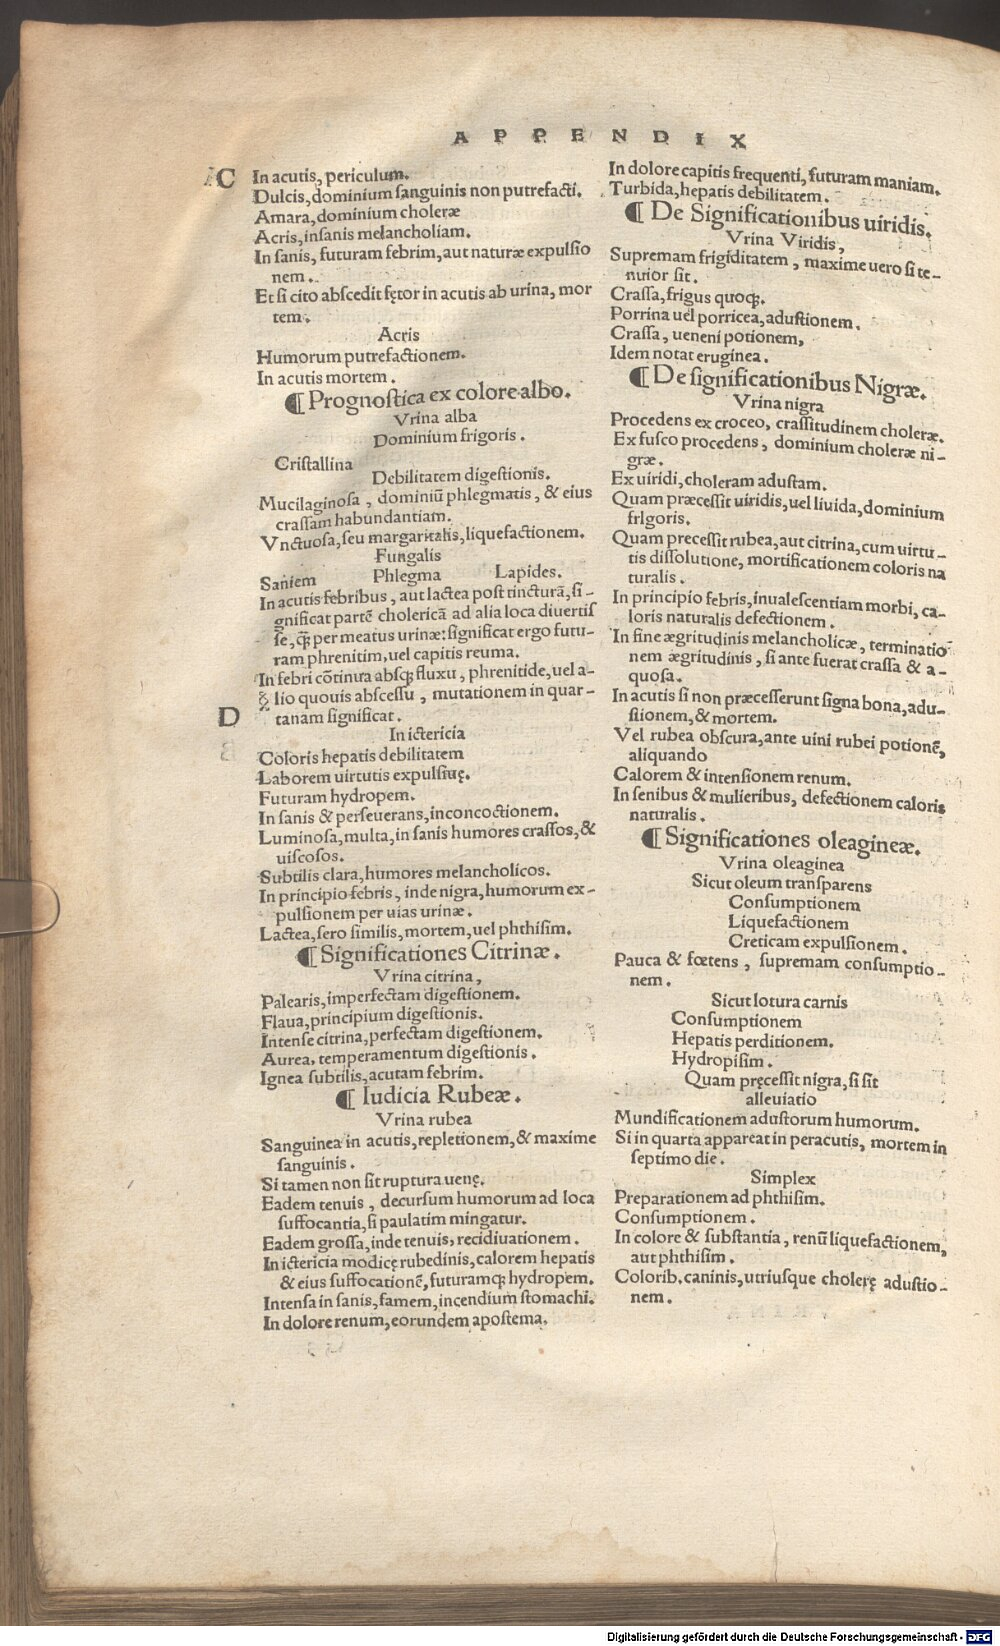 APPENDIX
C
In acutis, periculum.
Dulcis, dominium sanguinis non putrefacti.
Amara, dominium choleræ
Acris, insanis melancholiam.
In sanis, futuram febrim, aut naturæ expulsio
nem.
Et si cito abscedit fętor in acutis ab urina, mor
tem.
Acris
Humorum putrefactionem.
In acutis mortem.
¶ Prognostica ex colore albo.
Vrina alba
Dominium frigoris.
Cristallina
Debilitatem digestionis.
Mucilaginosa, dominiū phlegmatis, & eius
crassam habundantiam.
Vnctuosa, seu margaritalis, liquefactionem.
Fungalis
Saniem Phlegma Lapides.
In acutis febribus, aut lactea post tincturā, si-
gnificat partē cholericā ad alia loca diuertis
se, q̄ per meatus urinæ: significat ergo futu-
ram phrenitim, uel capitis reuma.
In febri cōtinua absq; fluxu, phrenitide, uel a-
lio quouis abscessu, mutationem in quar-
D
tanam significat.
In ictericia
Coloris hepatis debilitatem
Laborem uirtutis expulsiuę.
Futuram hydropem.
In sanis & perseuerans, inconcoctionem.
Luminosa, multa, in sanis humores crassos, &
uiscosos.
Subtilis clara, humores melancholicos.
In principio febris, inde nigra, humorum ex-
pulsionem per uias urinæ.
Lactea, sero similis, mortem, uel phthisim.
¶ Significationes Citrinæ.
Vrina citrina,
Palearis, imperfectam digestionem.
Flaua, principium digestionis.
Intense citrina, perfectam digestionem.
Aurea, temperamentum digestionis.
Ignea subtilis, acutam febrim.
¶ Iudicia Rubeæ.
Vrina rubea
Sanguinea in acutis, repletionem, & maxime
sanguinis.
Si tamen non sit ruptura uenę.
Eadem tenuis, decursum humorum ad loca
suffocantia, si paulatim mingatur.
Eadem grossa, inde tenuis, recidiuationem.
In ictericia modicę rubedinis, calorem hepatis
& eius suffocationē, futuramq; hydropem.
Intensa in sanis, famem, incendium stomachi.
In dolore renum, eorundem apostema.
In dolore capitis frequenti, futuram maniam.
Turbida, hepatis debilitatem.
¶ De Significationibus uiridis.
Vrina Viridis,
Supremam frigiditatem, maxime uero si te-
nuior sit.
Crassa, frigus quoq;.
Porrina uel porricea, adustionem.
Crassa, ueneni potionem,
Idem notat eruginea.
¶ De significationibus Nigræ.
Vrina nigra
Procedens ex croceo, crassitudinem choleræ.
Ex fusco procedens, dominium choleræ ni-
græ.
Ex uiridi, choleram adustam.
Quam præcessit uiridis, uel liuida, dominium
frigoris.
Quam precessit rubea, aut citrina, cum uirtu-
tis dissolutione, mortificationem coloris na
turalis.
In principio febris, inualescentiam morbi, ca-
loris naturalis defectionem.
In fine ægritudinis melancholicæ, terminatio
nem ægritudinis, si ante fuerat crassa & a-
quosa.
In acutis si non præcesserunt signa bona, adu-
stionem, & mortem.
Vel rubea obscura, ante uini rubei potionē,
aliquando
Calorem & intensionem renum.
In senibus & mulieribus, defectionem caloris
naturalis.
¶ Significationes oleagineæ.
Vrina oleaginea
Sicut oleum transparens
Consumptionem
Liquefactionem
Creticam expulsionem.
Pauca & fœtens, supremam consumptio-
nem.
Sicut lotura carnis
Consumptionem
Hepatis perditionem.
Hydropisim.
Quam pręcessit nigra, si sit
alleuiatio
Mundificationem adustorum humorum.
Si in quarta appareat in peracutis, mortem in
septimo die.
Simplex
Preparationem ad phthisim.
Consumptionem.
In colore & substantia, renū liquefactionem,
aut phthisim.
Colorib. caninis, utriusque cholerę adustio-
nem.
Digitalisierung gefördert durch die Deutsche Forschungsgemeinschaft - DFG